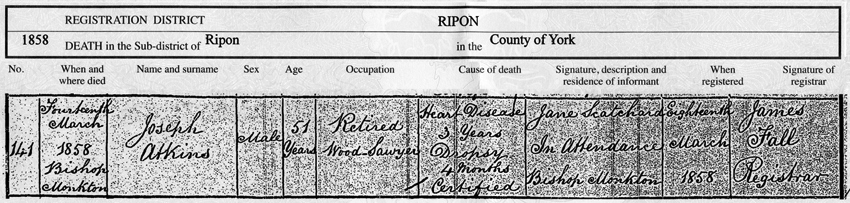 REGISTRATION DISTRICT RIPON
1858 DEATH in the Sub-district of Ripon in the County of York
No. When and where died Name and surname Sex Age Occupation Cause of death Signature, description and residence of informant When registered Signature of registrar
141
Fourteenth
March
1858
Bishop
Monkton
Joseph
Atkins
Male
51
Years
Retired
Wood-Sawyer
Heart Disease
3 Years
Dropsy
4 Months
Certified
Jane Scatchard
In Attendance
Bishop Monkton
Eighteenth
March
1858
James
Fall
Registrar